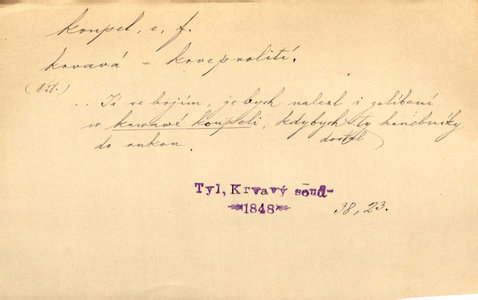 koupel, e, f.
krvavá – krveprolití.
(Děj.)
.. Já se bojím, že bych nalezl i zalíbení
v krvavé koupeli, kdybych ty hanebníky
dostal
do rukou.
Tyl, Krvavý soud-
-1848-
38, 23.